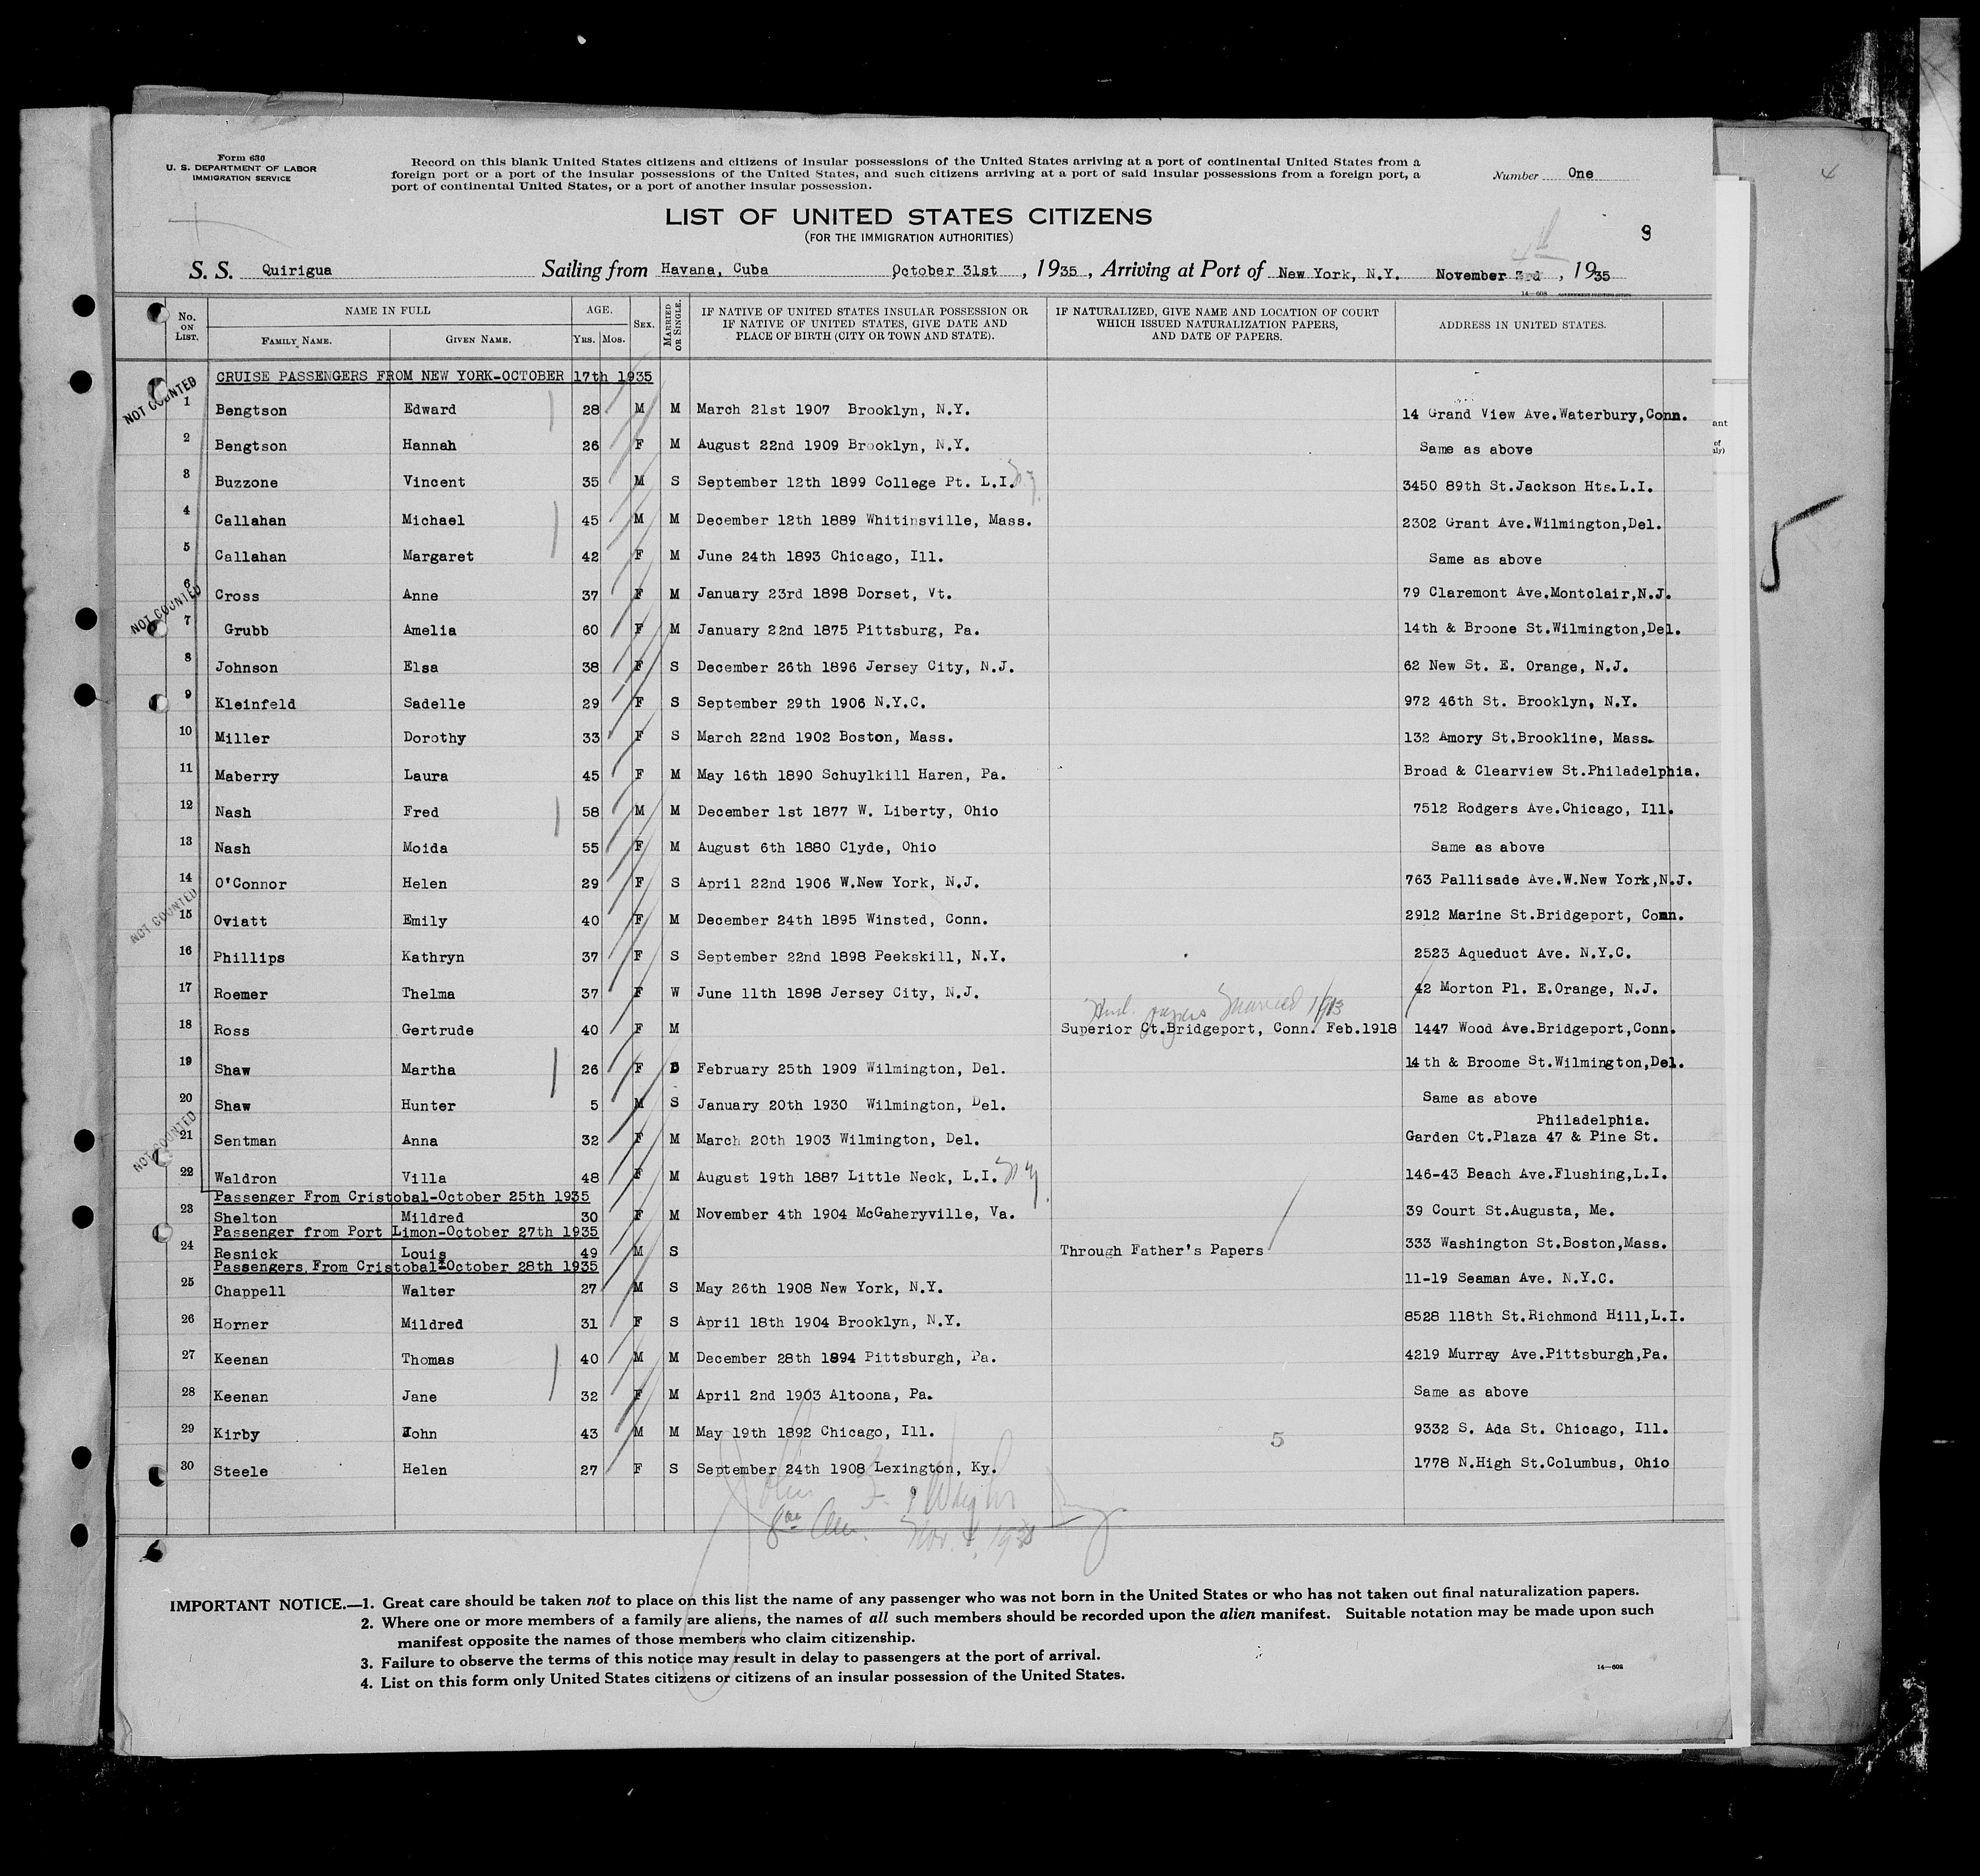 Form 630
U. S. DEPARTMENT OF LABOR
IMMIGRATION SERVICE
Record on this blank United States citizens and citizens of insular possessions of the United States arriving at a port of continental United States from a
foreign port or a port of the insular possessions of the United States, and such citizens arriving at a port of said insular possessions from a foreign port, a
port of continental United States, or a port of another insular possession.
Number One
LIST OF UNITED STATES CITIZENS
(FOR THE IMMIGRATION AUTHORITIES)
9
4th
S. S. Quirigua Sailing from Havana, Cuba October 31st, 1935, Arriving at Port of New York, N.Y. November 3rd, 1935
No. ON LIST. NAME IN FULL AGE. SEX. MARRIED OR SINGLE. IF NATIVE OF UNITED STATES INSULAR POSSESSION OR IF NATIVE OF UNITED STATES, GIVE DATE AND PLACE OF BIRTH (CITY OR TOWN AND STATE). IF NATURALIZED, GIVE NAME AND LOCATION OF COURT WHICH ISSUED NATURALIZATION PAPERS, AND DATE OF PAPERS. ADDRESS IN UNITED STATES.
FAMILY NAME. GIVEN NAME. YRS. MOS.
CRUISE PASSENGERS FROM NEW YORK-OCTOBER 17th 1935
NOT COUNTED
1 Bengtson Edward 28 M M March 21st 1907 Brooklyn, N.Y. 14 Grand View Ave.Waterbury,Conn.
2 Bengtson Hannah 26 F M August 22nd 1909 Brooklyn, N.Y. Same as above
3 Buzzone Vincent 35 M S September 12th 1899 College Pt. L.I. N.Y. 3450 89th St.Jackson Hts.L.I.
4 Callahan Michael 45 M M December 12th 1889 Whitinsville, Mass. 2302 Grant Ave.Wilmington,Del.
5 Callahan Margaret 42 F M June 24th 1893 Chicago, Ill. Same as above
6 Cross Anne 37 F M January 23rd 1898 Dorset, Vt. 79 Claremont Ave.Montclair,N.J.
NOT COUNTED
7 Grubb Amelia 60 F M January 22nd 1875 Pittsburg, Pa. 14th & Broone St.Wilmington,Del.
8 Johnson Elsa 38 F S December 26th 1896 Jersey City, N.J. 62 New St. E. Orange, N.J.
9 Kleinfeld Sadelle 29 F S September 29th 1906 N.Y.C. 972 46th St. Brooklyn, N.Y.
10 Miller Dorothy 33 F S March 22nd 1902 Boston, Mass. 132 Amory St.Brookline, Mass.
11 Maberry Laura 45 F M May 16th 1890 Schuylkill Haren, Pa. Broad & Clearview St.Philadelphia.
12 Nash Fred 58 M M December 1st 1877 W. Liberty, Ohio 7512 Rodgers Ave.Chicago, Ill.
13 Nash Moida 55 F M August 6th 1880 Clyde, Ohio Same as above
14 O'Connor Helen 29 F S April 22nd 1906 W.New York, N.J. 763 Pallisade Ave.W.New York,N.J.
NOT COUNTED
15 Oviatt Emily 40 F M December 24th 1895 Winsted, Conn. 2912 Marine St.Bridgeport, Conn.
16 Phillips Kathryn 37 F S September 22nd 1898 Peekskill, N.Y. 2523 Aqueduct Ave. N.Y.C.
17 Roemer Thelma 37 F W June 11th 1898 Jersey City, N.J. 42 Morton Pl. E.Orange, N.J.
Husb. papers Married 1913
18 Ross Gertrude 40 F M Superior Ct.Bridgeport, Conn. Feb.1918 1447 Wood Ave.Bridgeport,Conn.
19 Shaw Martha 26 F D February 25th 1909 Wilmington, Del. 14th & Broome St.Wilmington,Del.
20 Shaw Hunter 5 M S January 20th 1930 Wilmington, Del. Same as above
NOT COUNTED
Philadelphia.
21 Sentman Anna 32 F M March 20th 1903 Wilmington, Del. Garden Ct.Plaza 47 & Pine St.
22 Waldron Villa 48 F M August 19th 1887 Little Neck, L.I. N.Y. 146-43 Beach Ave.Flushing,L.I.
Passenger From Cristobal-October 25th 1935
23 Shelton Mildred 30 F M November 4th 1904 McGaheryville, Va. 39 Court St.Augusta, Me.
Passenger from Port Limon-October 27th 1935
24 Resnick Louis 49 M S Through Father's Papers 333 Washington St.Boston,Mass.
Passengers From Cristobal-October 28th 1935
25 Chappell Walter 27 M S May 26th 1908 New York, N.Y. 11-19 Seaman Ave. N.Y.C.
26 Horner Mildred 31 F S April 18th 1904 Brooklyn, N.Y. 8528 118th St.Richmond Hill,L.I.
27 Keenan Thomas 40 M M December 28th 1894 Pittsburgh, Pa. 4219 Murray Ave.Pittsburgh,Pa.
28 Keenan Jane 32 F M April 2nd 1903 Altoona, Pa. Same as above
29 Kirby John 43 M M May 19th 1892 Chicago, Ill. 9332 S. Ada St. Chicago, Ill.
5
30 Steele Helen 27 F S September 24th 1908 Lexington, Ky. 1778 N.High St.Columbus, Ohio
John F.
Nov. 4, 1935
IMPORTANT NOTICE.—1. Great care should be taken not to place on this list the name of any passenger who was not born in the United States or who has not taken out final naturalization papers.
2. Where one or more members of a family are aliens, the names of all such members should be recorded upon the alien manifest. Suitable notation may be made upon such
manifest opposite the names of those members who claim citizenship.
3. Failure to observe the terms of this notice may result in delay to passengers at the port of arrival.
4. List on this form only United States citizens or citizens of an insular possession of the United States.
14—608